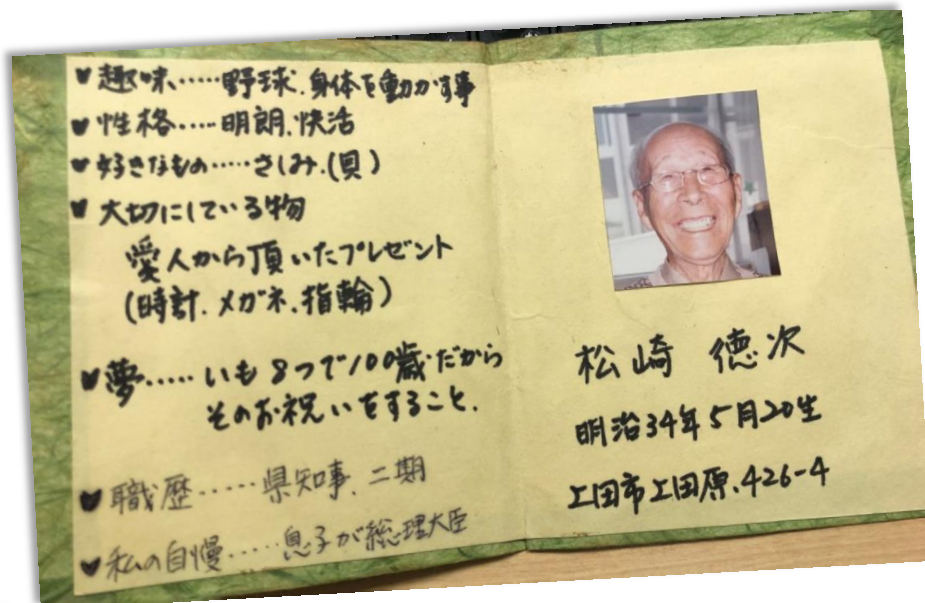 ♥趣味‥‥‥野球、身体を動かす事
♥性格‥‥‥明朗、快活
♥好きなもの‥‥‥さしみ、(貝)
♥大切にしている物
愛人から頂いたプレゼント
(時計、メガネ、指輪)
♥夢‥‥‥いも8つで100歳だから
そのお祝いをすること。
♥職歴‥‥‥県知事、二期
♥私の自慢‥‥‥息子が総理大臣
松崎 徳次
明治34年5月20生
上田市上田原、426-4